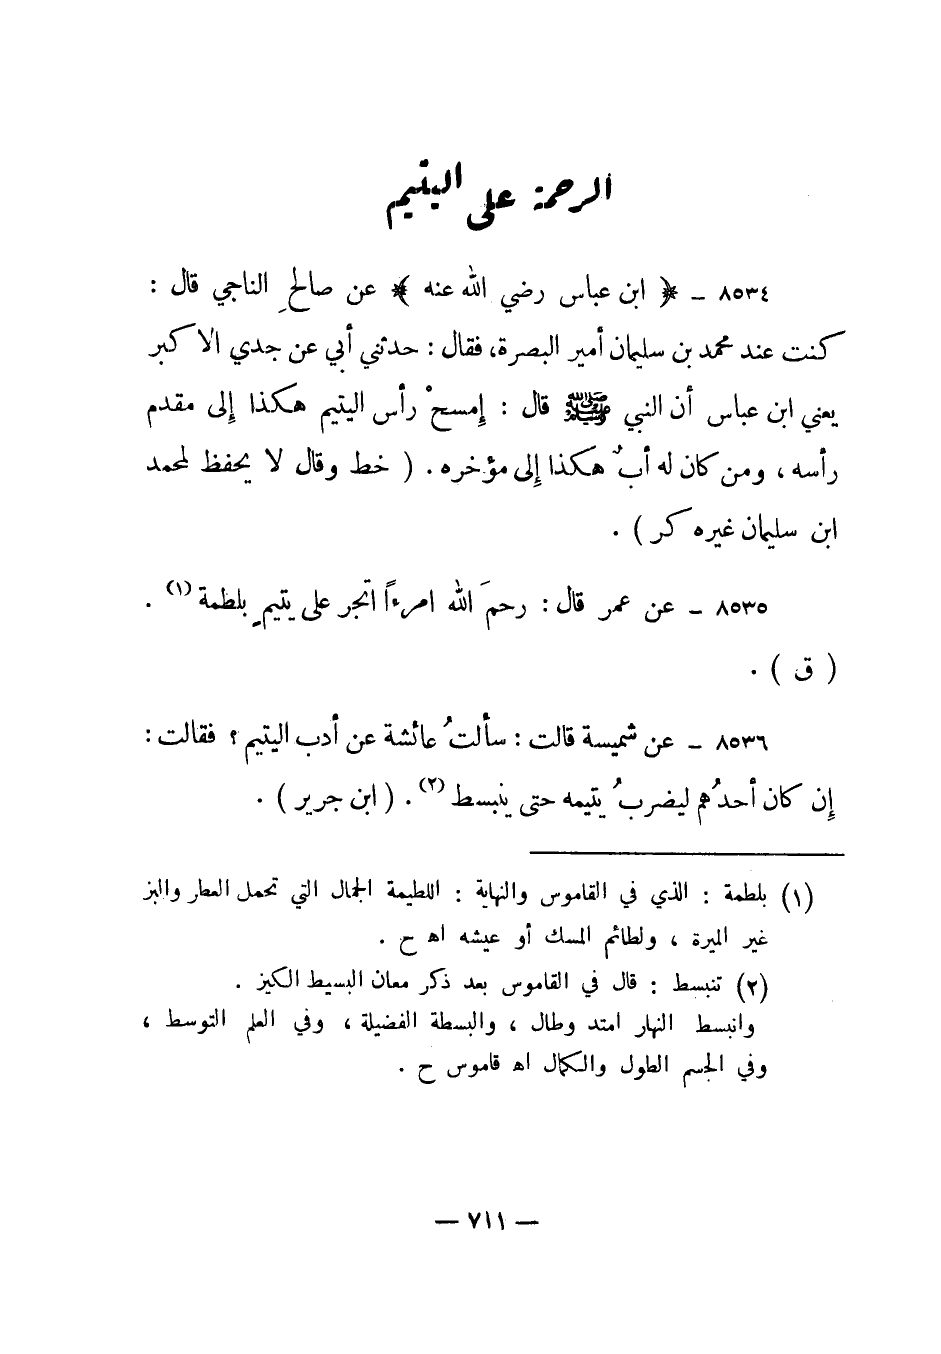 الرحمة على اليتيم
٨٥٣٤ – ﴿ ابن عباس رضي الله عنه ﴾ عن صالحِ الناجي قال :
كنت عند محمد بن سليمان أمير البصرة، فقال : حدثني أبي عن جدي الاكبر
يعني ابن عباس أن النبي ﷺ قال : إمسحْ رأس اليتيم هكذا إلى مقدم
رأسه ، ومن كان له أبٌ هكذا إلى مؤخره . ( خط وقال لا يحفظ لمحمد
ابن سليمان غيره كر ) .
٨٥٣٥ – عن عمر قال : رحمَ الله امرءاً اتجر على يتيمٍ بلطمة (١) .
( ق ) .
٨٥٣٦ – عن شميسة قالت : سألتُ عائشة عن أدب اليتيم ؟ فقالت :
إن كان أحدُهم ليضربُ يتيمه حتى ينبسط (٢) . ( ابن جرير ) .
(١) بلطمة : الذي في القاموس والنهاية : اللطيمة الجمال التي تحمل العطار والبز
غير الميرة ، ولطائم المسك أو عيشه اه ح .
(٢) تنبسط : قال في القاموس بعد ذكر معان البسيط الكيز .
وانبسط النهار امتد وطال ، والبسطة الفضيلة ، وفي العلم التوسط ،
وفي الجسم الطول والكمال اه قاموس ح .
— ٧١١ —